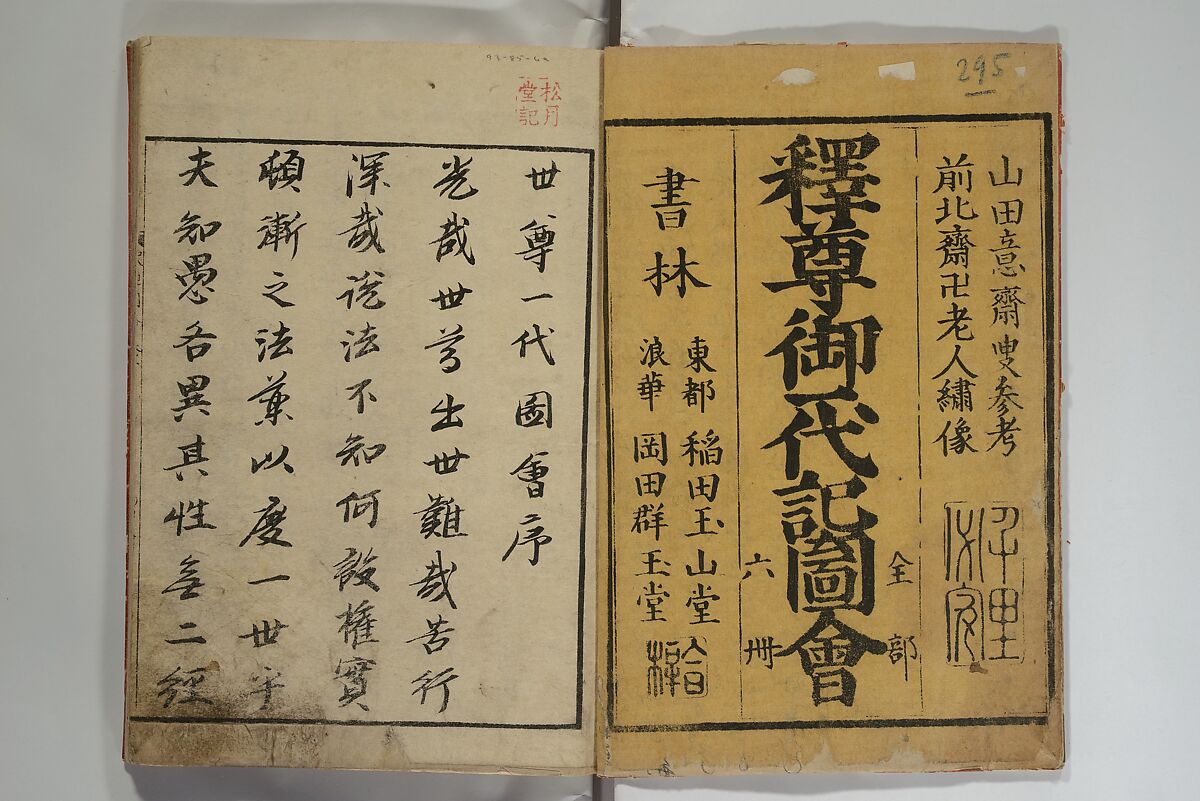 295
山田意齋叟参考
前北齋卍老人繡像
千里必究
釋尊御一代記圖會
全部
六冊
書林
東都 稲田玉山堂
浪華 岡田群玉堂
合梓
93-85-6a
松月
堂記
世尊一代圖會序
炗哉世尊出世難哉苦行
深哉説法不知何設権實
頓漸之法薬以度一世乎
夫知愚各異其性無二經